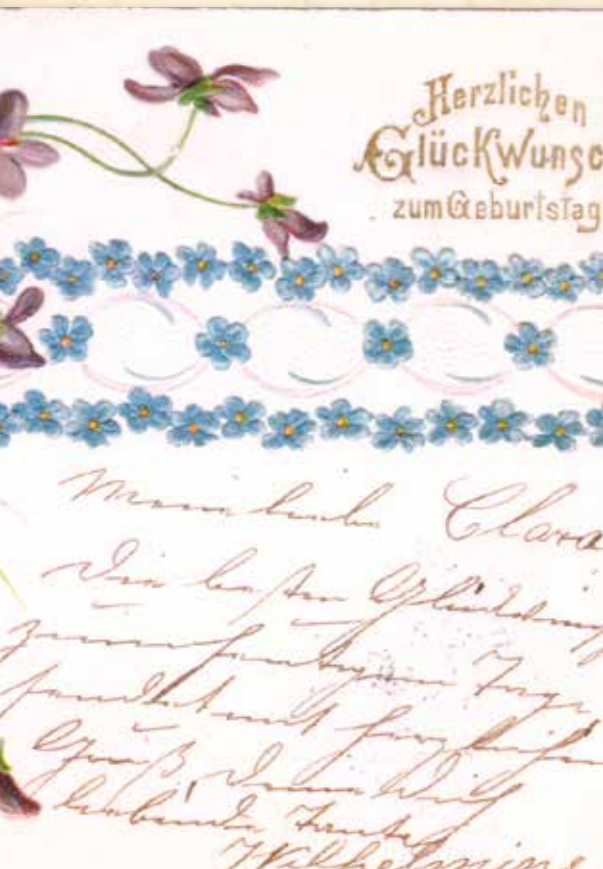 Herzlichen
Glückwunsc
zum Geburtstag
Meine liebe Clara
Die besten Glückwun
zum heutigen Tage
sendet mit herzlichem
Gruß, Deine Dich
liebende Tante
Wilhelmine